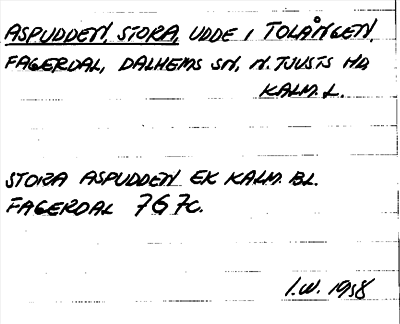 ASPUDDEN, STORA, UDDE I TOLÅNGEN,
FAGERDAL, DALHEMS SN, N. TJUSTS HD
KALM. L.
STORA ASPUDDEN EK KALM. BL.
FAGERDAL 7G7c.
I.W. 1958